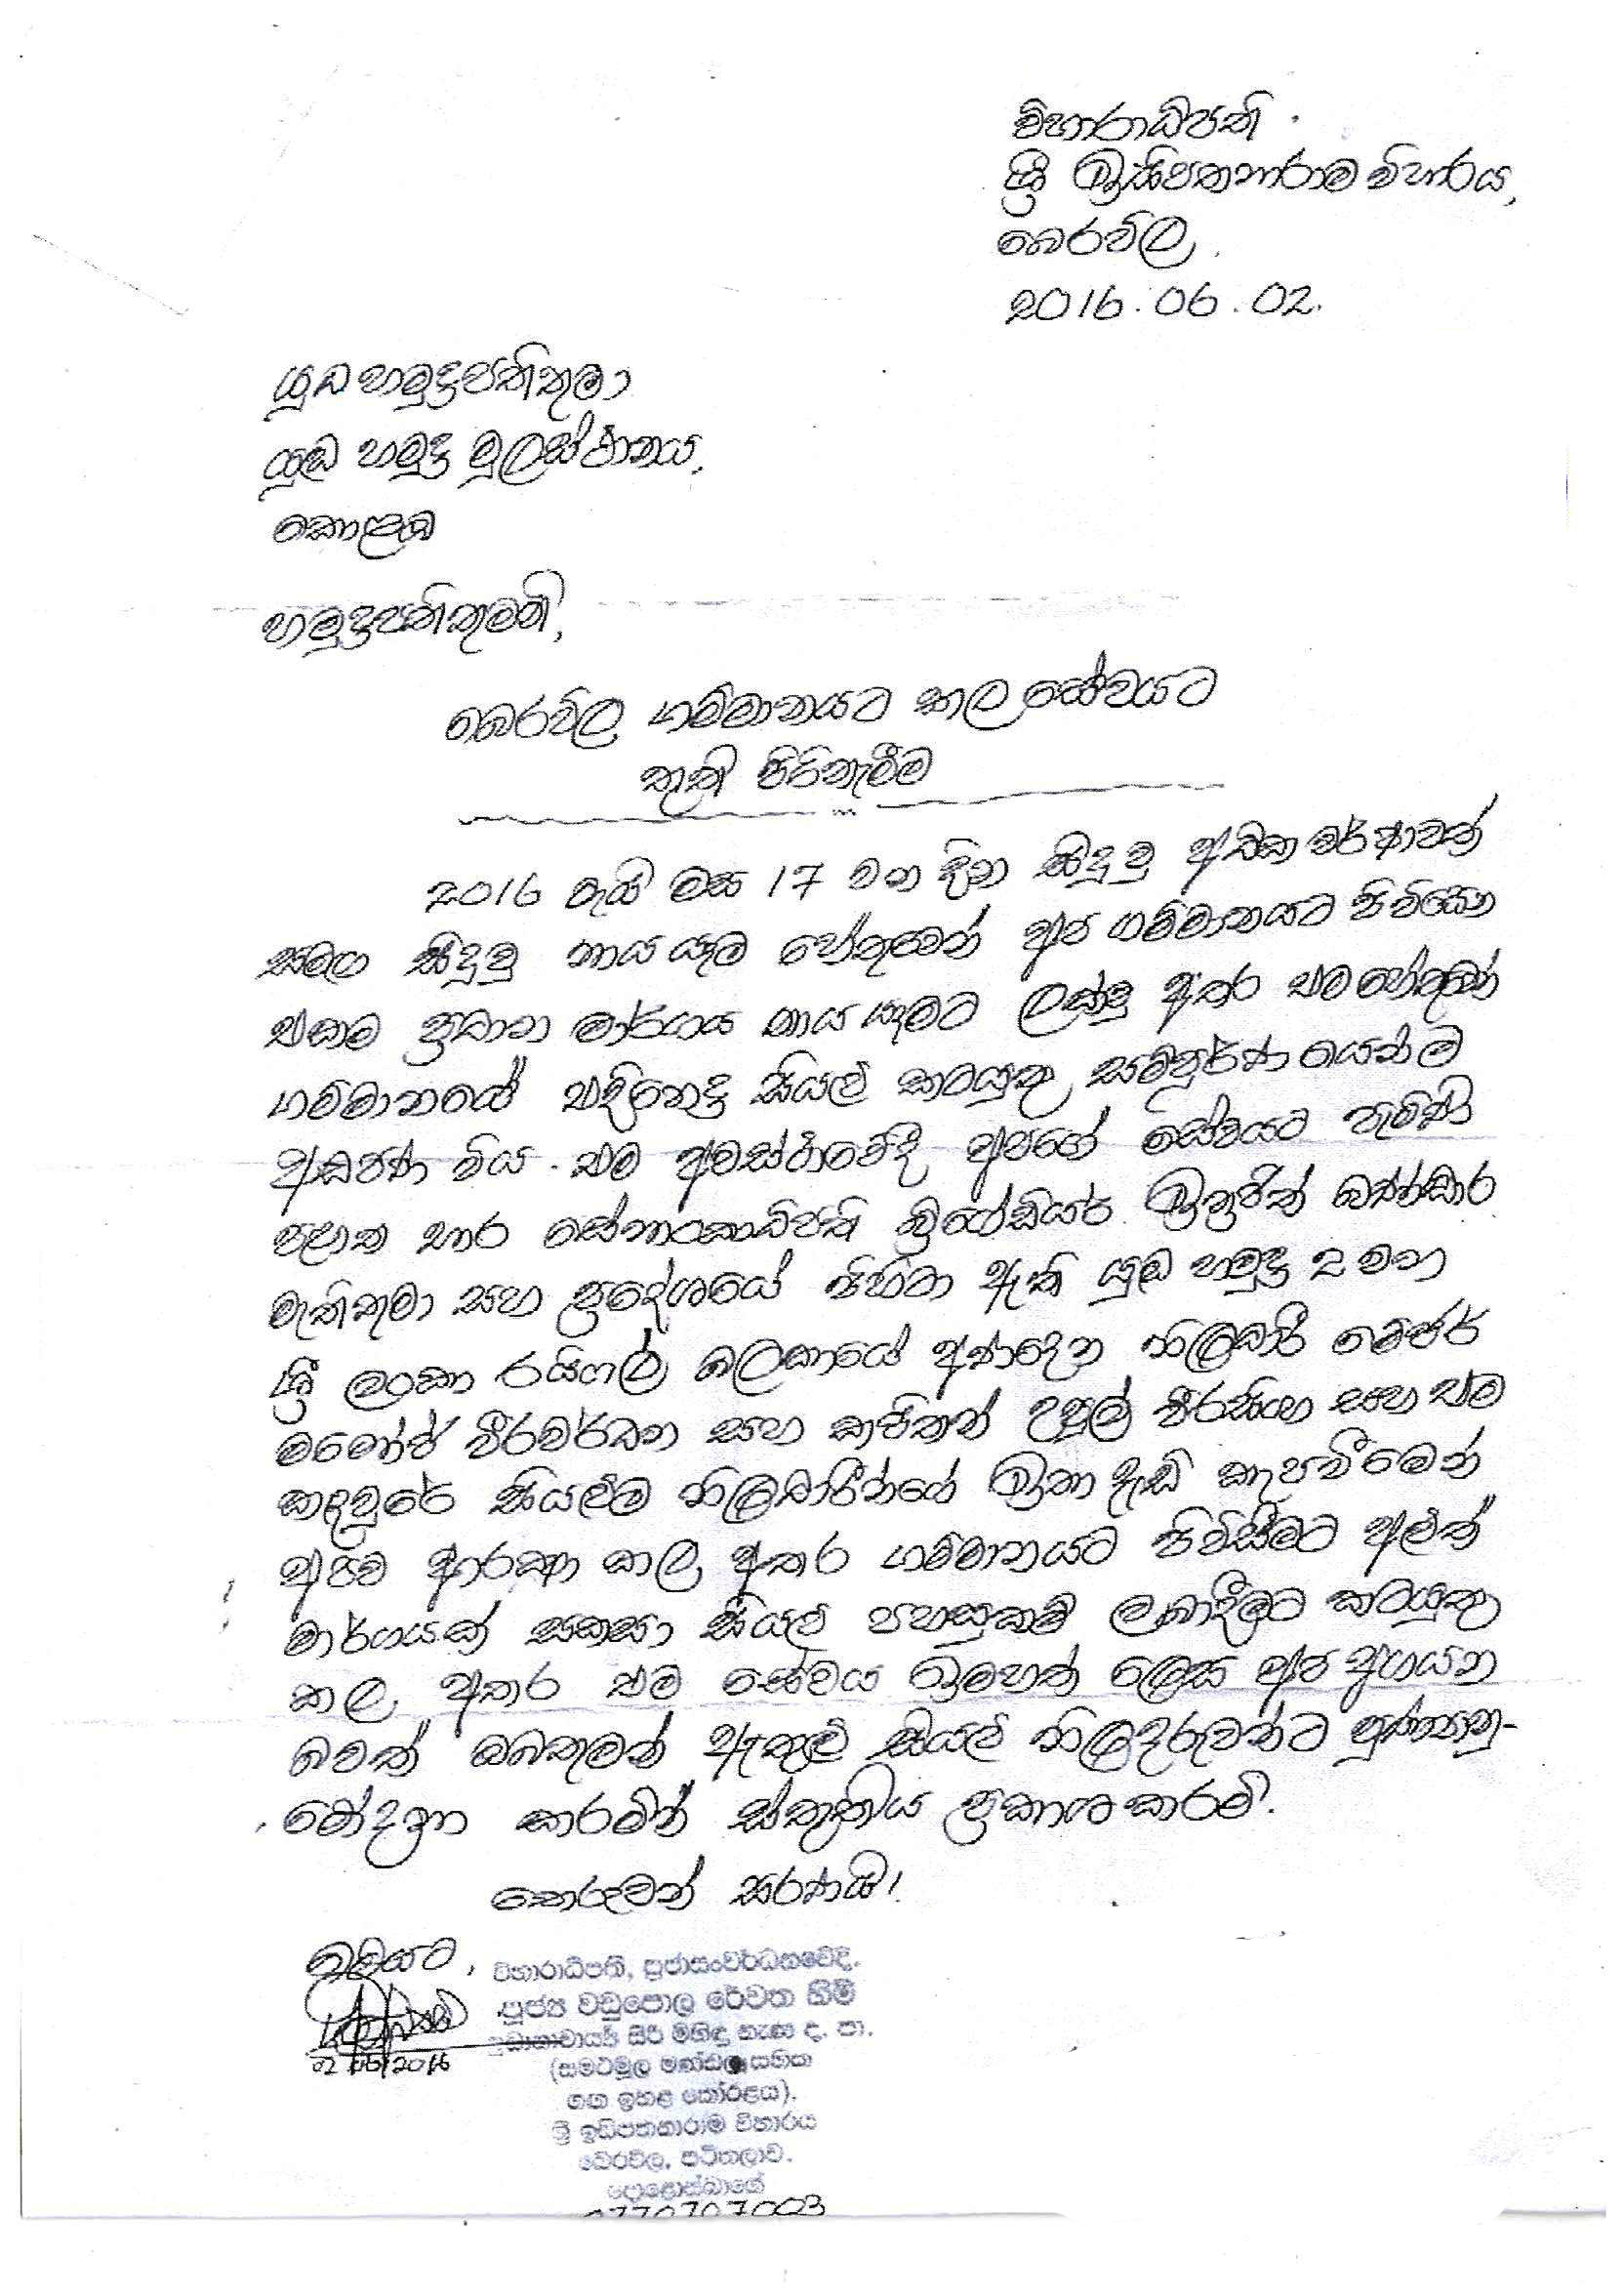 විහාරාධිපති
ශ්‍රී ඉසිපතනාරාම විහාරය,
බෙරවිල.
2016.06.02.
යුධ හමුදාපතිතුමා
යුධ හමුදා මූලස්ථානය,
කොළඹ
හමුදාපතිතුමනි,
බෙරවිල ගම්මානයට කල සේවයට
තුති පිරිනැමීම
2016 මැයි මස 17 වන දින සිදුවු අධික වර්ෂාවත්
සමග සිදුවු නාය යෑම හේතුවෙන් අප ගම්මානයට පිවිසෙන
එකම ප්‍රධාන මාර්ගය නාය යෑමට ලක්වු අතර එම හේතුවෙන්
ගම්මානයේ එදිනෙදා සියළු කටයුතු සම්පුර්ණයෙන්ම
අඩපණ විය. එම අවස්ථාවේදී අපගේ සේවයට පැමිණි
පළාත භාර සේනාංකාධිපති බ්‍රිගේඩියර් ඉන්ද්‍රජිත් බණ්ඩාර
මැතිතුමා සහ ප්‍රදේශයේ පිහිටා ඇති යුධ හමුදා 2 වන
ශ්‍රී ලංකා රයිෆල් බලකායේ අණදෙන නිලධාරී මේජර්
මනෝජ් වීරවර්ධන සහ කපිතන් උපුල් වීරසිංහ සහ එම
කඳවුරේ සියළුම නිලධාරීන්ගේ ඉතා දැඩි කැපවීමෙන්
අපව ආරක්ෂා කල අතර ගම්මානයට පිවිසීමට අළුත්
මාර්ගයක් සකසා සියළු පහසුකම් ලබාදීමට කටයුතු
කල අතර එම සේවය ඉමහත් ලෙස අප අගයන
බවත් ඔබතුමන් ඇතුළු සියළු නිලදරුවන්ට පුණ්‍යානු-
මෝදනා කරමින් ස්තුතිය ප්‍රකාශ කරමි.
තෙරුවන් සරණයි!
මෙයට,
විහාරාධිපති, ප්‍රජාසංවර්ධනවේදී,
පූජ්‍ය වඩුපොල රේවත හිමි
ප්‍රධානාචාර්ය සිරි මිහිඳු නැණ ද. පා.
(සමථමූල මණ්ඩල සභික
ගඟ ඉහළ කෝරළය).
ශ්‍රී ඉසිපතනාරාම විහාරය
බෙරවිල, පටිතලාව.
දොළොස්බාගේ
02/06/2016